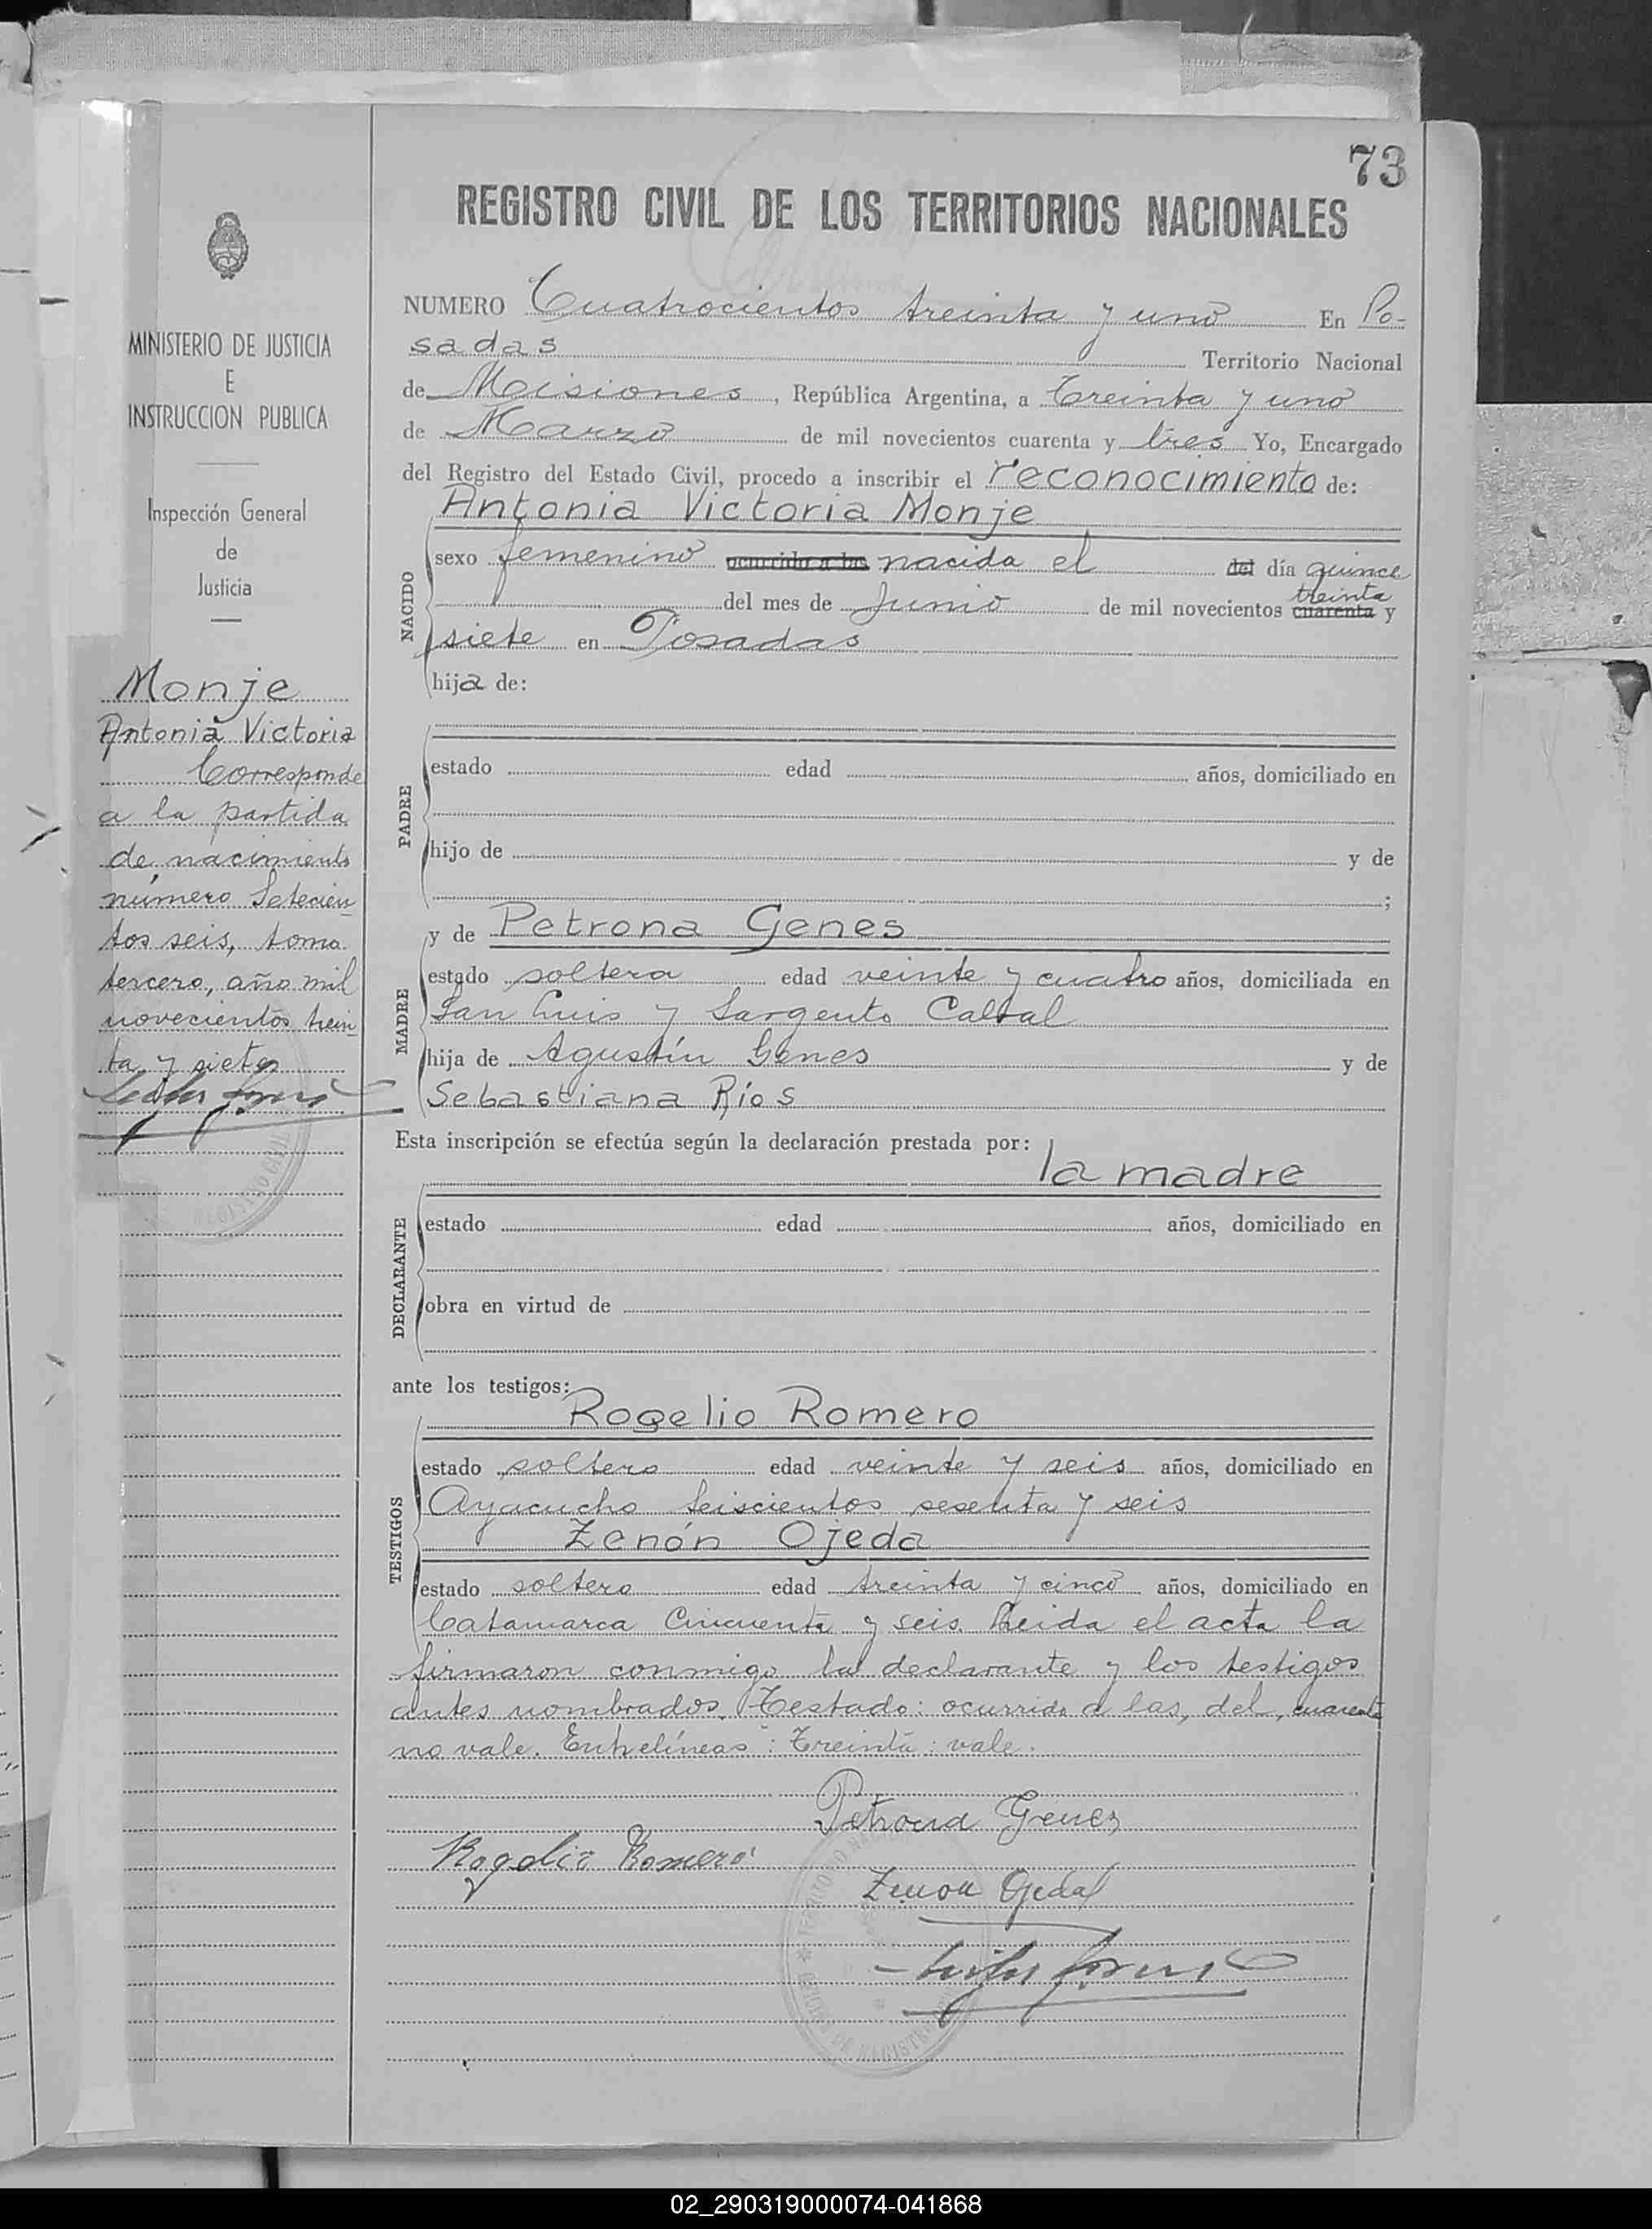 73
REGISTRO CIVIL DE LOS TERRITORIOS NACIONALES
MINISTERIO DE JUSTICIA
E
INSTRUCCION PUBLICA
Inspección General
de
Justicia
Monje
Antonia Victoria
Corresponde
a la partida
de nacimiento
número Setecien-
tos seis, tomo
tercero, año mil
novecientos trein-
ta y siete
NUMERO Cuatrocientos treinta y uno En Po-
sadas Territorio Nacional
de Misiones, República Argentina, a Treinta y uno
de Marzo de mil novecientos cuarenta y tres Yo, Encargado
del Registro del Estado Civil, procedo a inscribir el reconocimiento de:
Antonia Victoria Monje
NACIDO
sexo femenino ocurrido a las nacida el del día quince
treinta
del mes de Junio de mil novecientos cuarenta y
siete en Posadas
hija de:
PADRE
estado edad años, domiciliado en
hijo de y de
;
y de Petrona Genes
MADRE
estado soltera edad veinte y cuatro años, domiciliada en
San Luis y Sargento Cabral
hija de Agustín Genes y de
Sebastiana Ríos
Esta inscripción se efectúa según la declaración prestada por:
la madre
DECLARANTE
estado edad años, domiciliado en
obra en virtud de
ante los testigos:
Rogelio Romero
TESTIGOS
estado soltero edad veinte y seis años, domiciliado en
Ayacucho Seiscientos sesenta y seis
Zenón Ojeda
estado soltero edad treinta y cinco años, domiciliado en
Catamarca Cincuenta y seis. Leida el acta la
firmaron conmigo la declarante y los testigos
antes nombrados. Testado: ocurrido a las, del, cuarenta
no vale. Entrelíneas: Treinta: vale.
Petrona Genes
Rogelio Romero
Zenon Ojeda
02_290319000074-041868